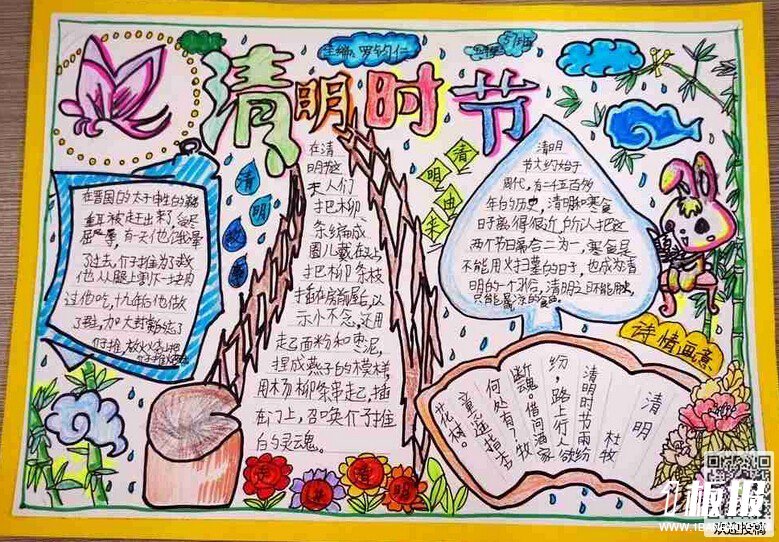 主编:罗钧仁
清明时节
清明故事
在晋国的太子申生的弟
重耳被赶出来了
屈辱,有一天他们
了过去,介子推为了救
他从腿上割下一块肉
过他吃,十九年后他做
了君主,加大封
在清
明节这
天人们
把柳
条编成
圈儿戴在头上
把柳条枝
插在房前屋后,以
示小不念,还用
走已面粉和枣泥,
捏成燕子的模样,
用杨柳条串走已,插
在门上,召唤介子推
的灵魂。
清明由来
清明
节大约始于
周代,有二千五百多
年的历史,清明和寒食
日子离得很近,所以把这
两个节日合二为一,寒食
不能用火扫墓的日子,也成为清
明的一个习俗,清明之日不能用火
只能
诗情画意
清明
杜牧
清明时节雨纷
纷,路上行人欲
断魂。借问酒家
何处有?牧
童遥指杏
花村。
走进清明
板报
WWW.1BANBAO.COM
欢迎投稿